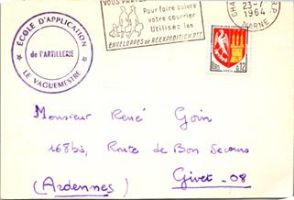 ÉCOLE D'APPLICATION
de l'ARTILLERIE
LE VAGUEMESTRE
Pour faire suivre
votre courrier
Utilisez les
ENVELOPPES DE REEXPEDITION
23-7
1964
MARNE
0,12
Monsieur René Goin
168bis, Route de Bon Secours
(Ardennes) Givet-08